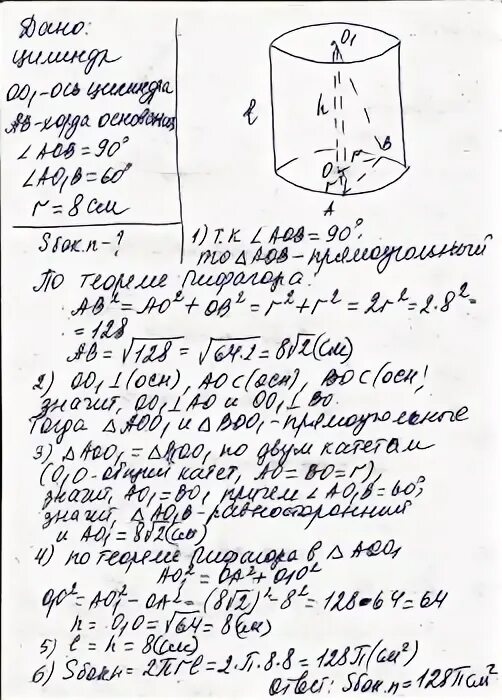 Дано:
цилиндр
OO₁-ось цилиндра
AB-хорда основания
∠AOB=90°
∠AO₁B=60°
r=8см
Sбок.п-?
O₁
h
ℓ
B
O
r
r
A
1) т.к ∠AOB=90°,
то △AOB-прямоугольный
По теореме Пифагора:
AB²=AO²+OB²=r²+r²=2r²=2·8²=
=128
AB=√128=√64·2=8√2(см)
2) OO₁⊥(осн), AO⊂(осн), BO⊂(осн),
значит, OO₁⊥AO и OO₁⊥BO.
Тогда △AOO₁ и △BOO₁-прямоугольные
3) △AOO₁=△BOO₁ по двум катетам
(O₁O-общий катет, AO=BO=r),
значит, AO₁=BO₁ причем ∠AO₁B=60°,
значит, △AO₁B-равносторонний
и AO₁=8√2(см)
4) по теореме Пифагора в △AOO₁
AO₁²=OA²+O₁O²
O₁O²=AO₁²-OA²=(8√2)²-8²=128-64=64
h=O₁O=√64=8(см)
5) ℓ=h=8(см)
6) Sбок.п=2πrℓ=2·π·8·8=128π(см²)
Ответ: Sбок.п=128πсм²